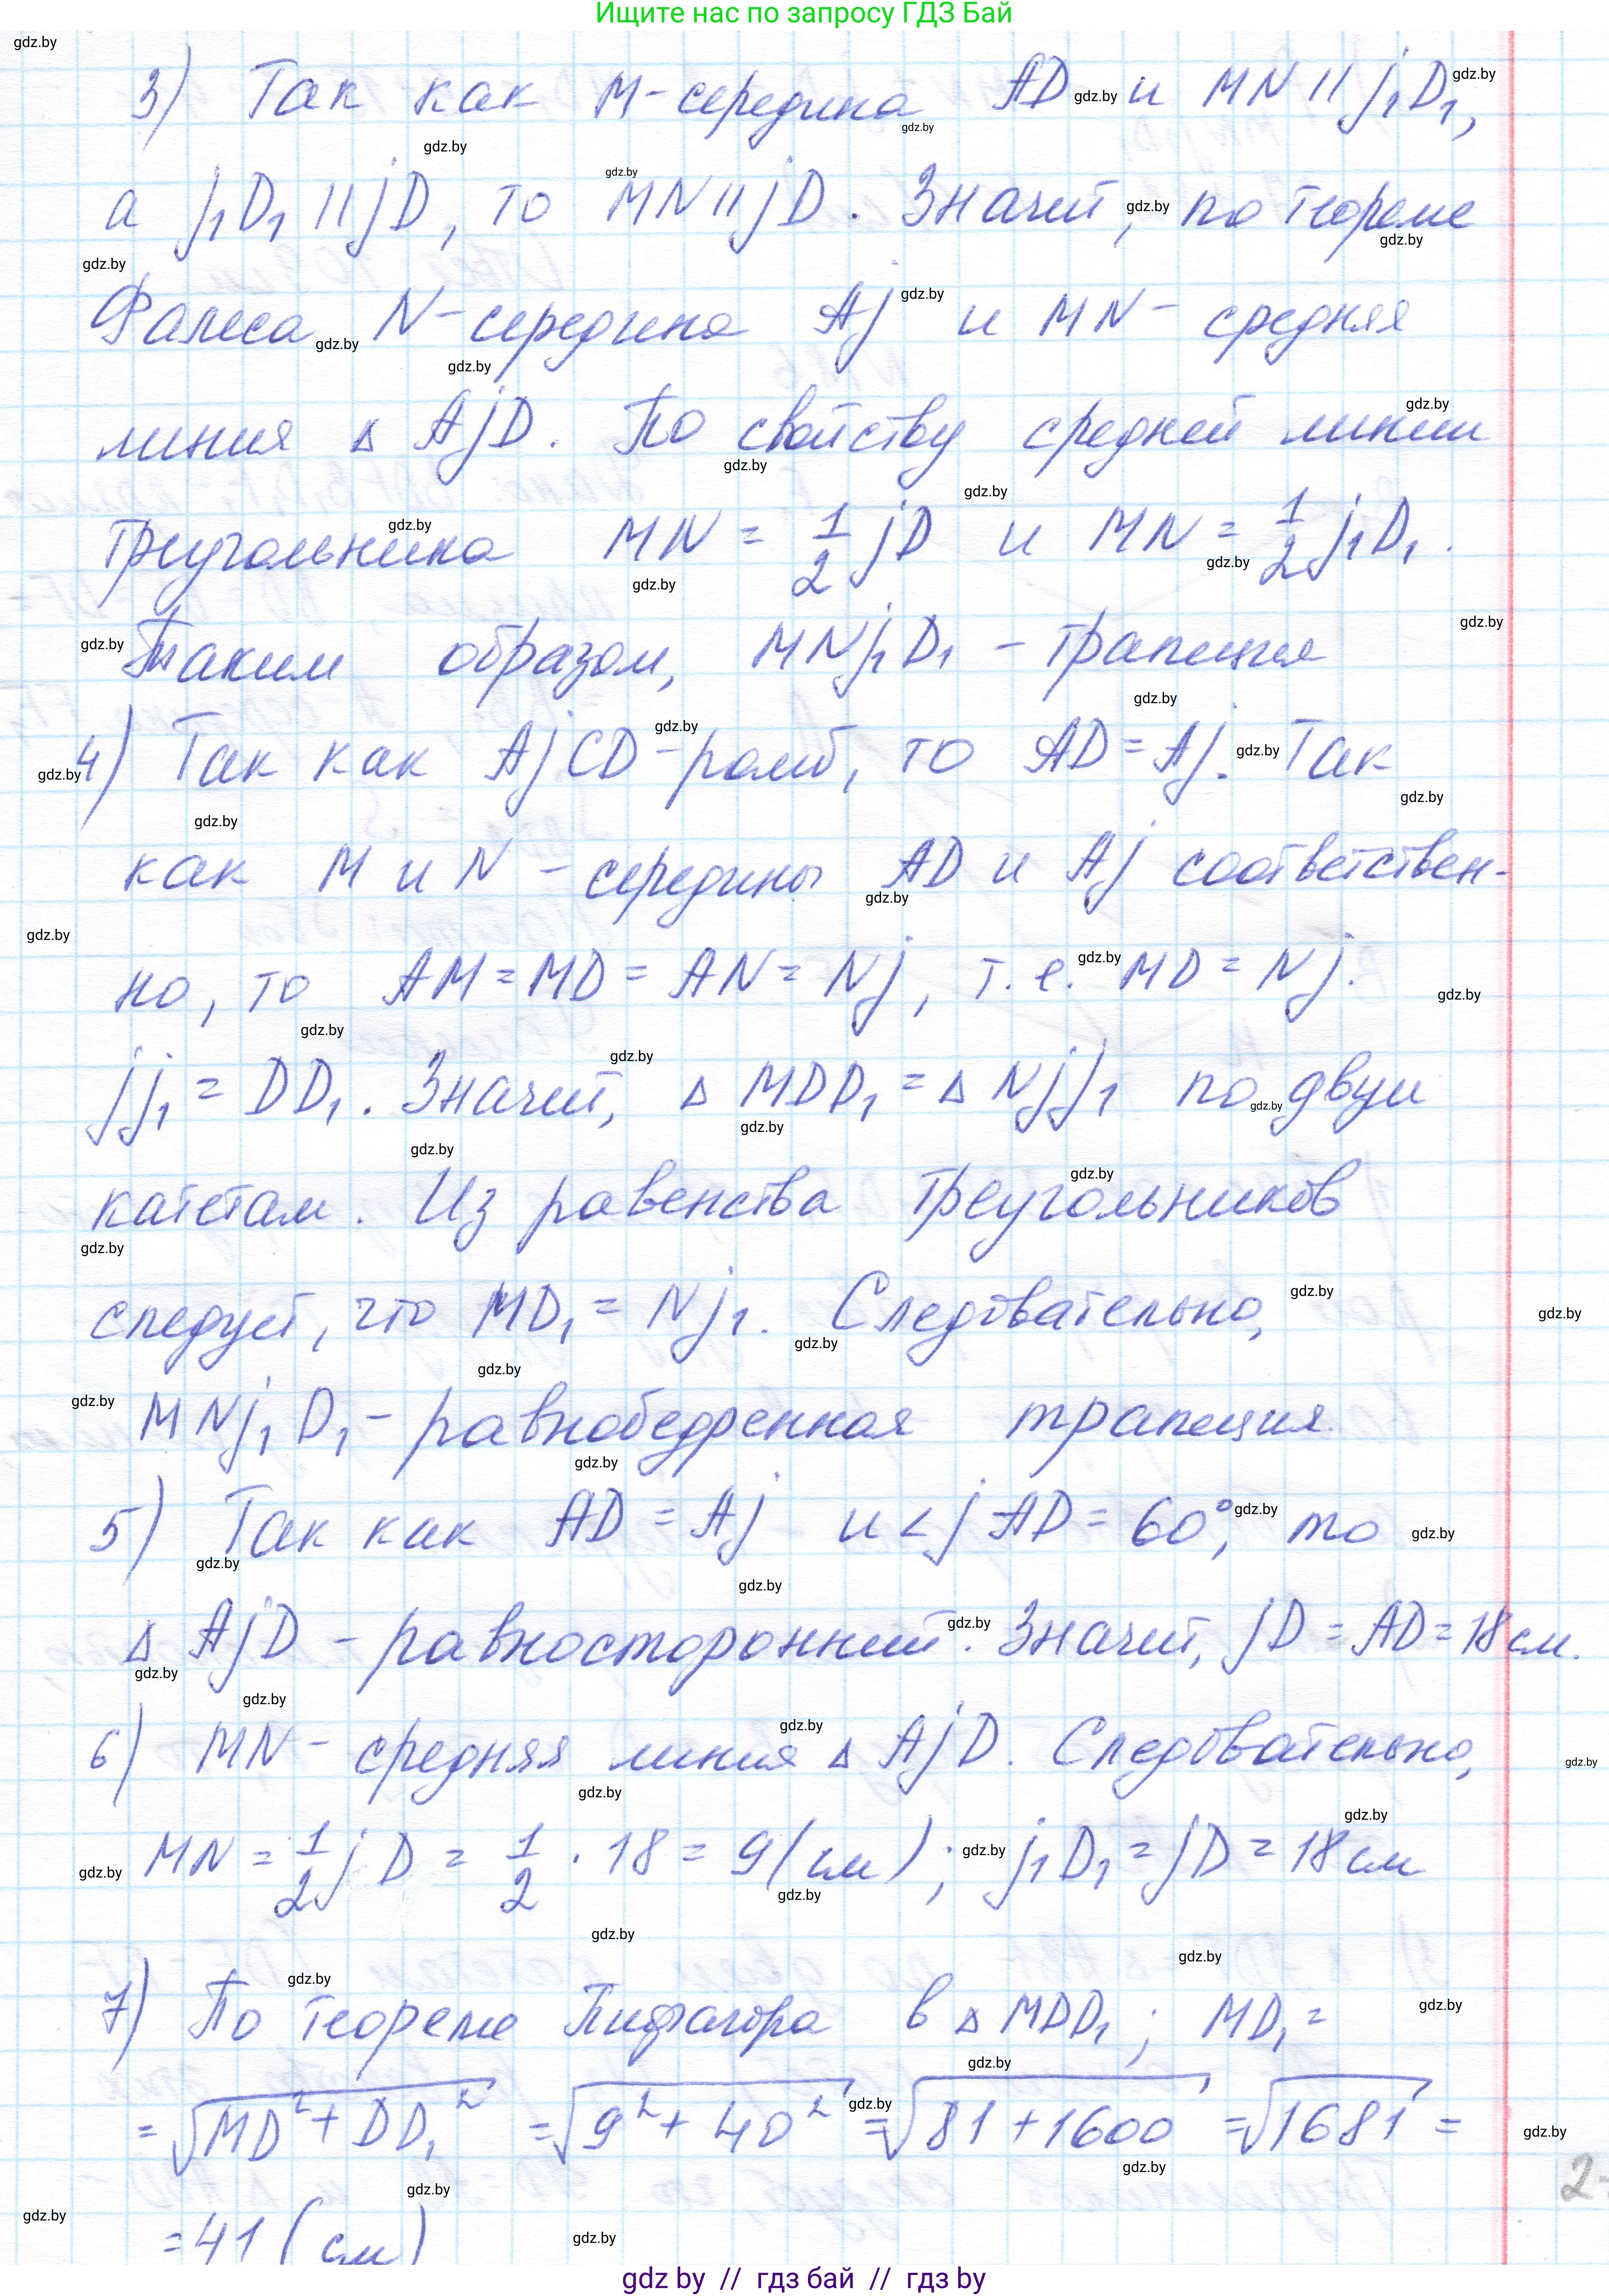 Ищите нас по запросу ГДЗ Бай
3) Так как M-середина AD и MN || j₁D₁,
а j₁D₁ || jD, то MN || jD. Значит, по теореме
Фалеса N-середина Aj и MN - средняя
линия △ AjD. По свойству средней линии
треугольника MN = 1/2 jD и MN = 1/2 j₁D₁.
Таким образом, MNj₁D₁ - трапеция
4) Так как AjCD - ромб, то AD = Aj. Так
как M и N - середины AD и Aj соответствен-
но, то AM = MD = AN = Nj, т.е. MD = Nj.
jj₁ = DD₁. Значит, △ MDD₁ = △ Njj₁ по двум
катетам. Из равенства треугольников
следует, что MD₁ = Nj₁. Следовательно,
MNj₁D₁ - равнобедренная трапеция.
5) Так как AD = Aj и ∠jAD = 60°, то
△ AjD - равносторонний. Значит, jD = AD = 18 см.
6) MN - средняя линия △ AjD. Следовательно,
MN = 1/2 jD = 1/2 · 18 = 9 (см); j₁D₁ = jD = 18 см
7) По теореме Пифагора в △ MDD₁; MD₁ =
= √(MD² + DD₁²) = √(9² + 40²) = √(81 + 1600) = √1681 =
= 41 (см)
gdz by // гдз бай // гдз by